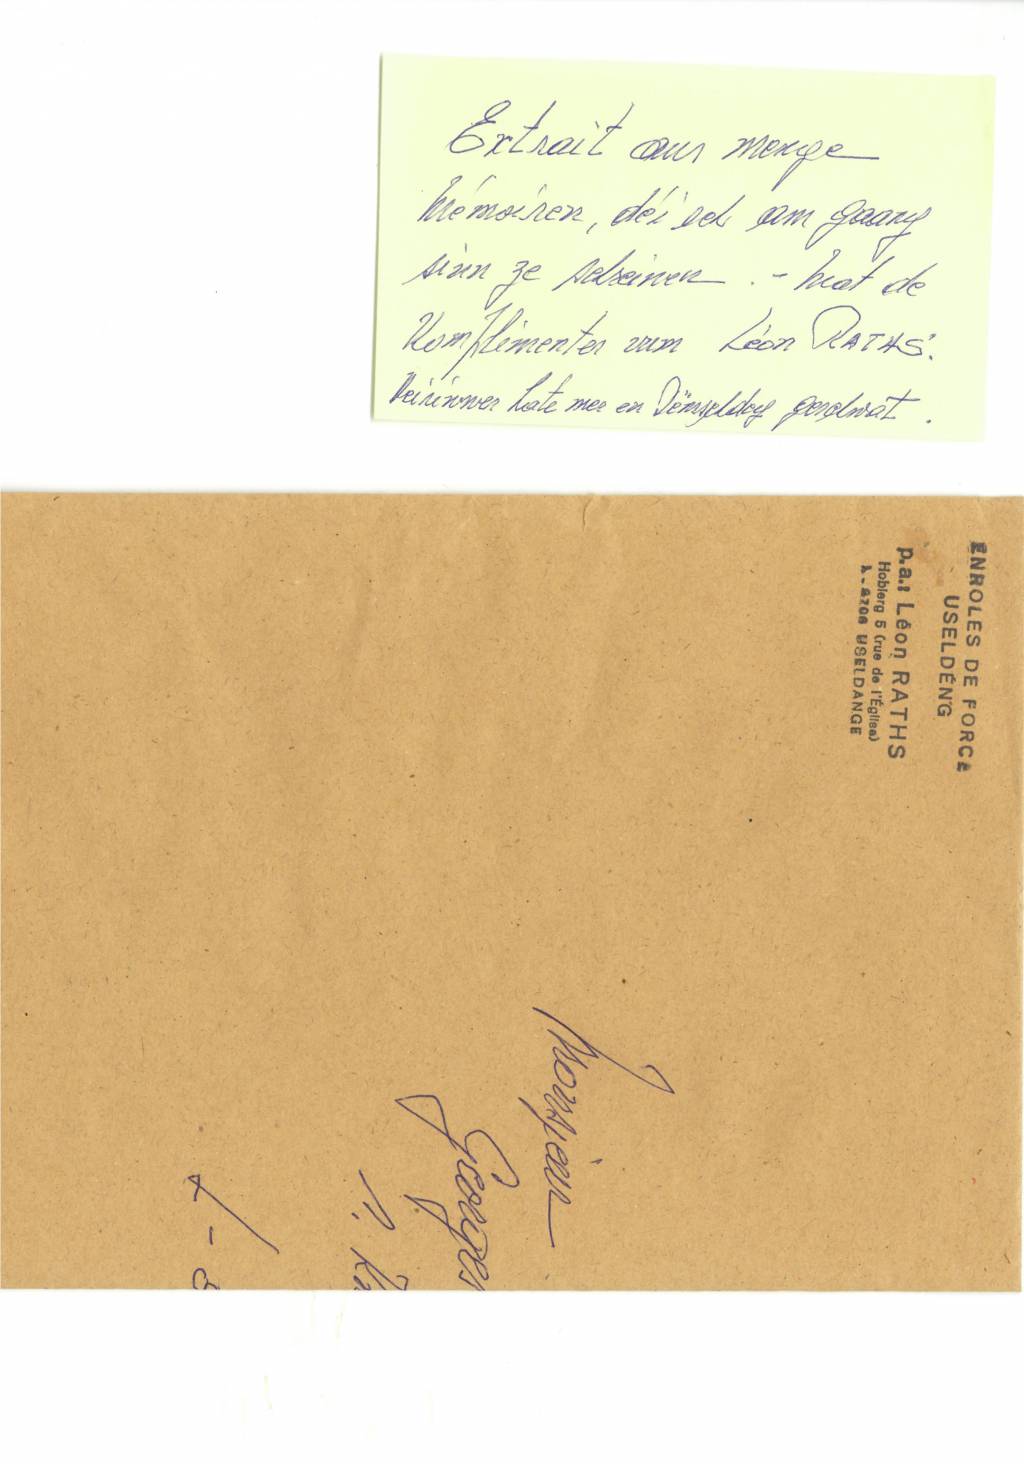 Extrait aus menge
Mémoiren, déi ech am gaang
sinn ze schreinen. - Mat de
Komplimenter vum Léon RATHS.
hate mer en geschwat.
ENROLES DE FORCE
USELDÉNG
p.a.: Léon RATHS
Hobierg 5 (rue de l'Église)
L-8706 USELDANGE
Monsieur
Georges
L-